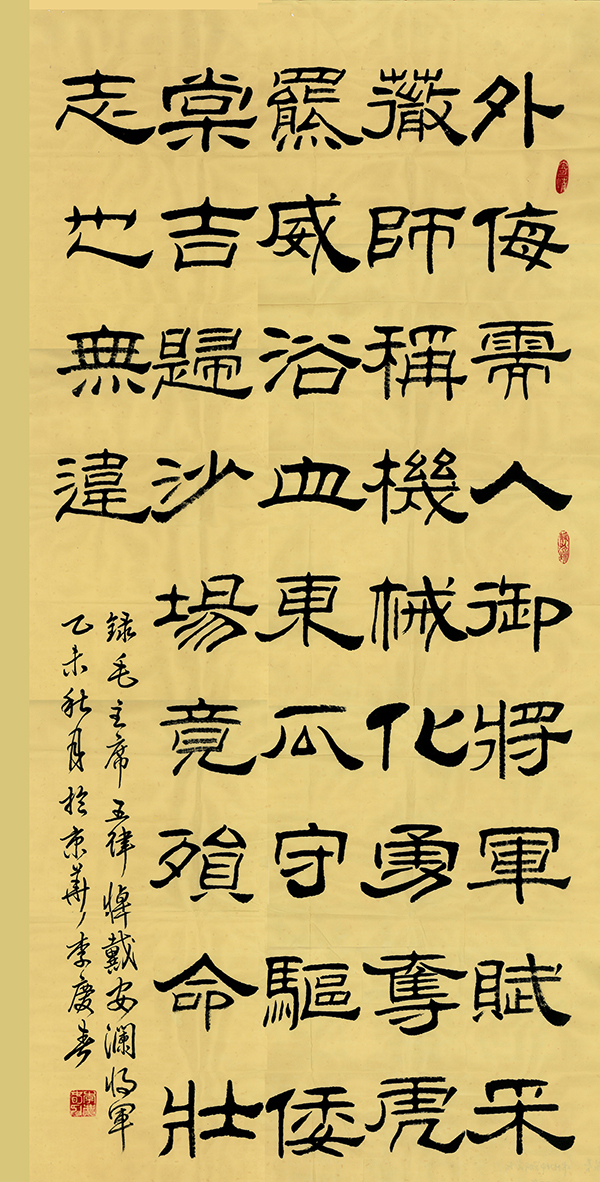 外侮需人御將軍賦采
薇師稱機械化勇奪虎
羆威浴血東瓜守驅倭
棠吉歸沙場竟殞命壯
志也無違
録毛主席五律悼戴安瀾将軍
乙未秋月於京華李慶春